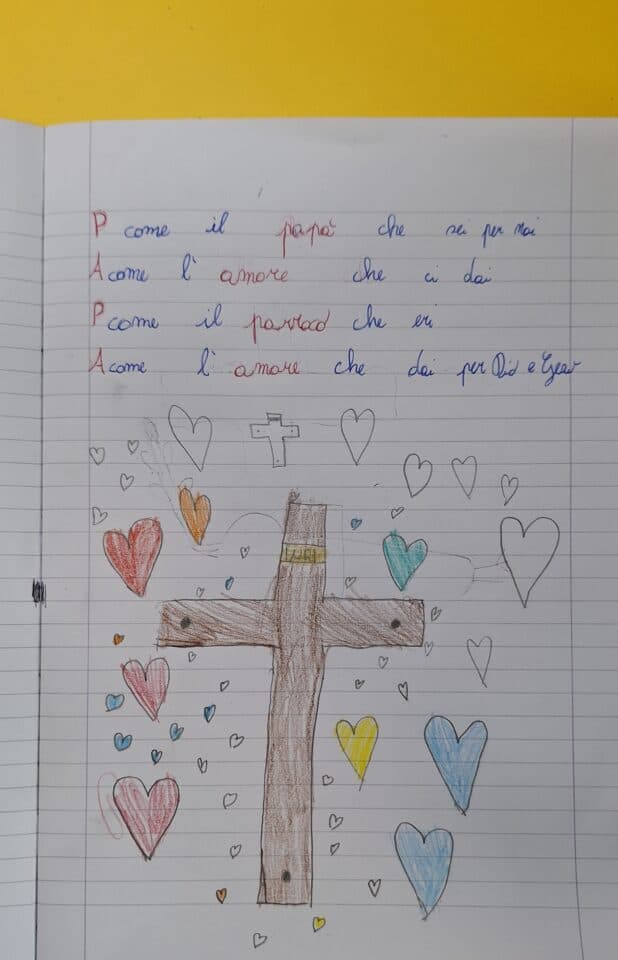 P come il papà che sei per noi
A come l'amore che ci dai
P come il parroco che eri
A come l'amore che dai per Dio e
INRI